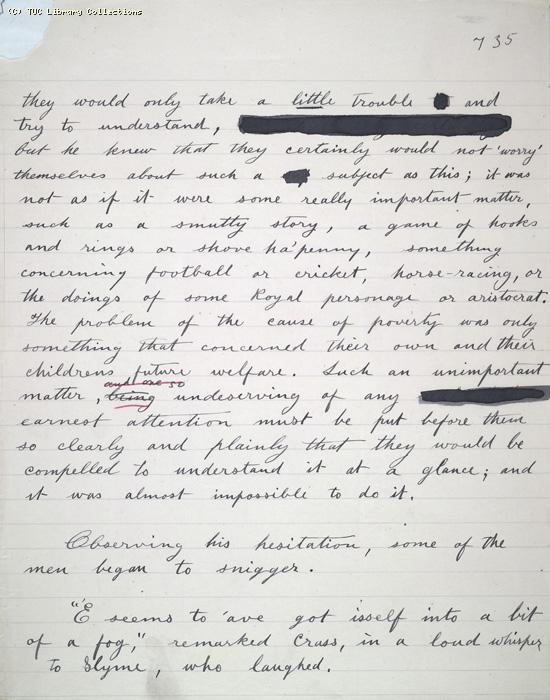 (C) TUC Library Collections
735
they would only take a little trouble and
try to understand,
but he knew that they certainly would not 'worry'
themselves about such a subject as this; it was
not as if it were some really important matter,
such as a smutty story, a game of hooks
and rings or shove ha'penny, something
concerning football or cricket, horse-racing, or
the doings of some Royal personage or aristocrat.
The problem of the cause of poverty was only
something that concerned their own and their
childrens future welfare. Such an unimportant
and one so
matter, being undeserving of any
earnest attention must be put before them
so clearly and plainly that they would be
compelled to understand it at a glance; and
it was almost impossible to do it.
Observing his hesitation, some of the
men began to snigger.
"'E seems to 'ave got isself into a bit
of a fog," remarked Crass, in a loud whisper
to Slyme, who laughed.